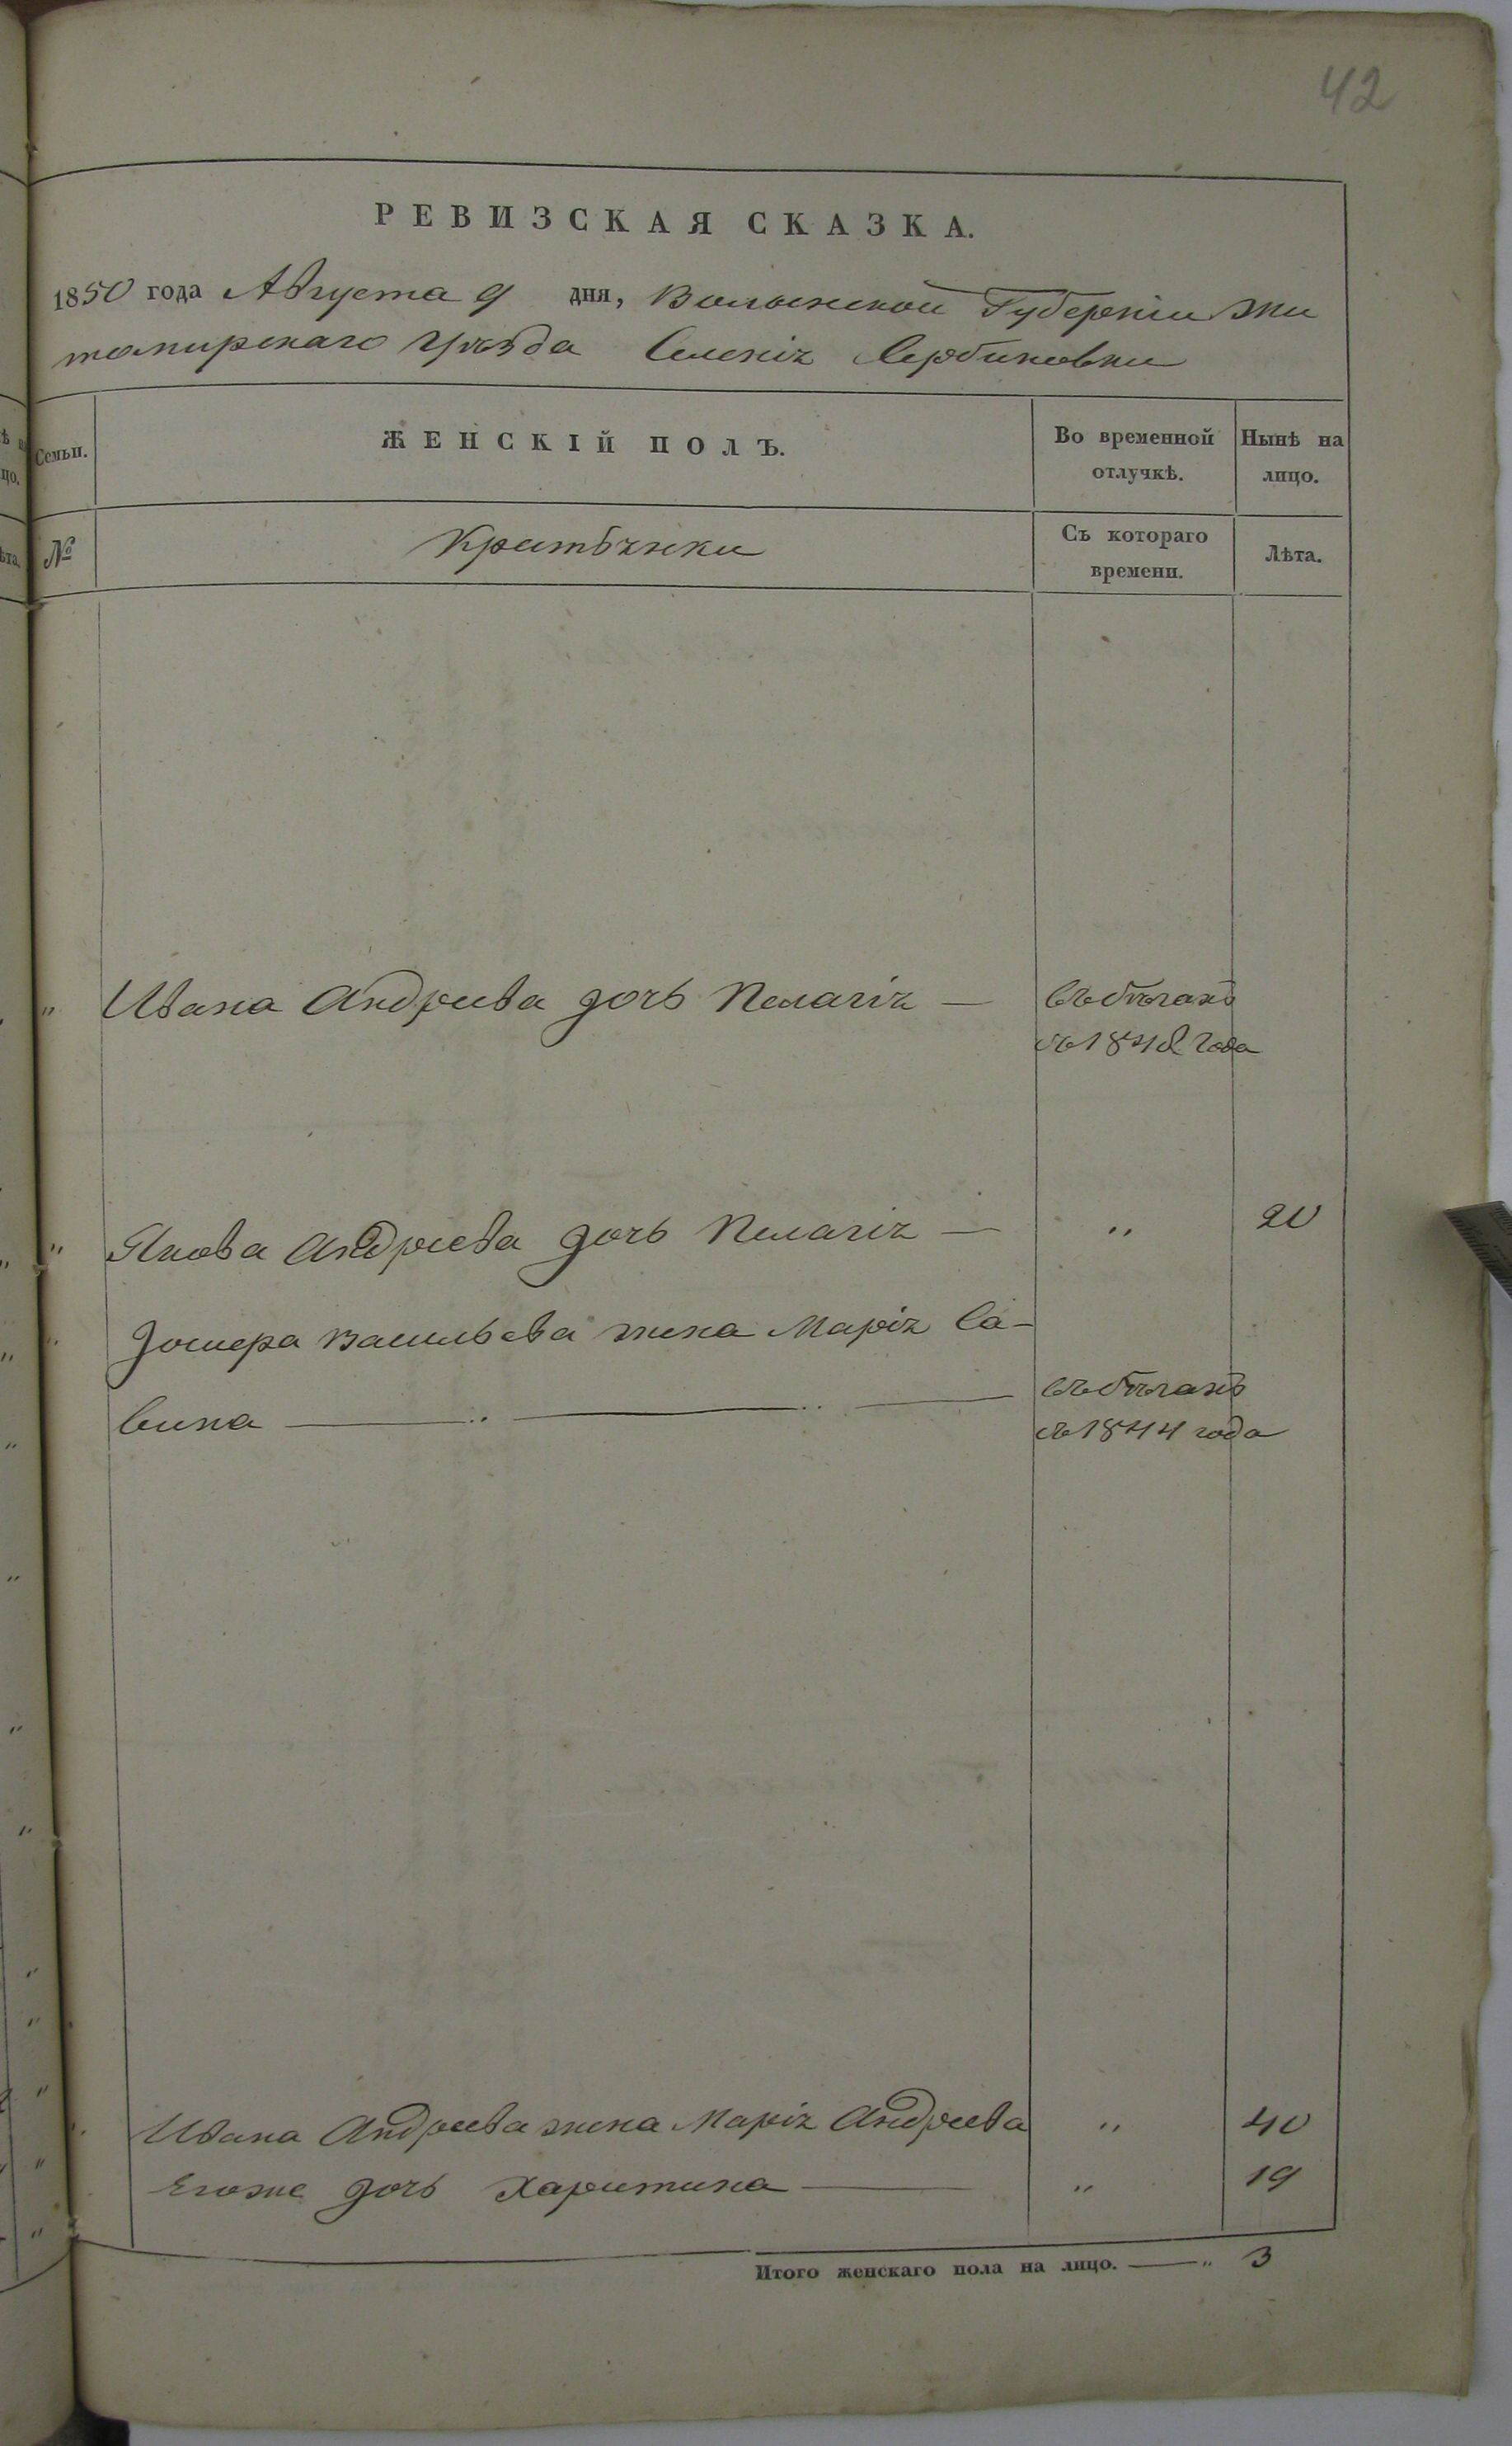 42
РЕВИЗСКАЯ СКАЗКА.
1850 года Августа 9 дня, Волынской Губерніи Жи
томирскаго Уѣзда Селенія Сербиновки
Семьи. ЖЕНСКІЙ ПОЛЪ. Во временной отлучкѣ. Нынѣ на лицо.
№ Съ котораго времени. Лѣта.
" Ивана Андреева дочь Пелагія — въ бѣгахъ
съ 1848 года
" Якова Андреева дочь Пелагія — " 20
" Василъева жена Марія Са-
вина — " — " — въ бѣгахъ
съ 1844 года
Ивана Андреева жена Марія Андреева " 40
Егоже дочь Харитина — " 19
Итого женскаго пола на лицо. — " 3